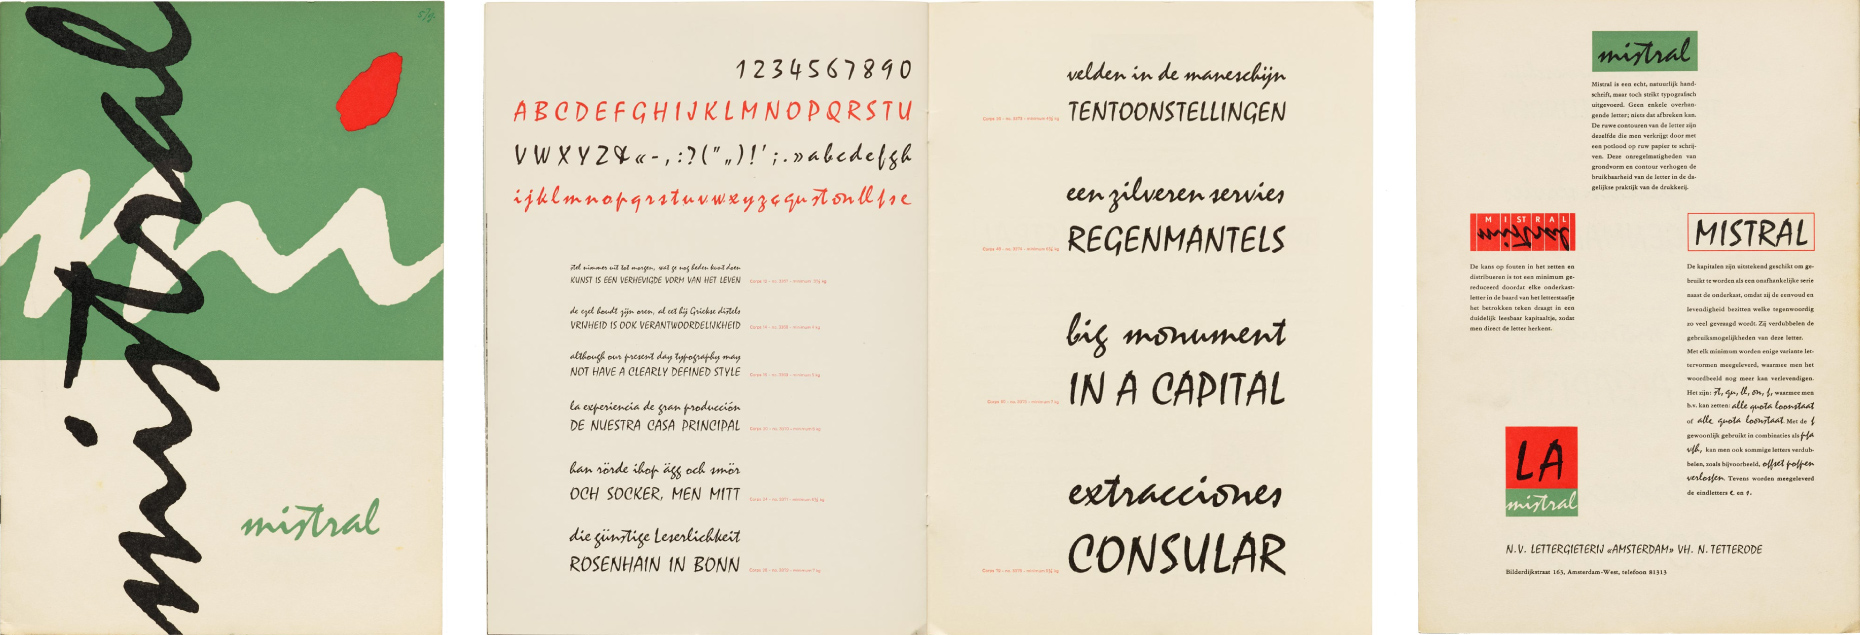 mistral
mistral
1234567890
ABCDEFGHIJKLMNOPQRSTU
VWXYZ& «-,:?("„)!';.» abcdefgh
ijklmnopqrstuvwxyzçqu st on ll f s e
stel nimmer uit tot morgen, wat ge nog heden kunt doen
KUNST IS EEN VERHEVIGDE VORM VAN HET LEVEN
de ezel houdt zijn oren, al eet hij Griekse distels
VRIJHEID IS OOK VERANTWOORDELIJKHEID
although our present day typography may
NOT HAVE A CLEARLY DEFINED STYLE
la experiencia de gran producción
DE NUESTRA CASA PRINCIPAL
han rörde ihop ägg och smör
OCH SOCKER, MEN MITT
die günstige Leserlichkeit
ROSENHAIN IN BONN
velden in de maneschijn
TENTOONSTELLINGEN
een zilveren servies
REGENMANTELS
big monument
IN A CAPITAL
extracciones
CONSULAR
mistral
Mistral is een echt, natuurlijk hand-
schrift, maar toch strikt typografisch
uitgevoerd. Geen enkele overhan-
gende letter; niets dat afbreken kan.
De ruwe contouren van de letter zijn
dezelfde die men verkrijgt door met
een potlood op ruw papier te schrij-
ven. Deze onregelmatigheden van
grondvorm en contour verhogen de
bruikbaarheid van de letter in de da-
gelijkse praktijk van de drukkerij.
MISTRAL
mistral
De kans op fouten in het zetten en
distribueren is tot een minimum ge-
reduceerd doordat elke onderkast-
letter in de baard van het letterstaafje
het betrokken teken draagt in een
duidelijk leesbaar kapitaaltje, zodat
men direct de letter herkent.
MISTRAL
De kapitalen zijn uitstekend geschikt om ge-
bruikt te worden als een onafhankelijke serie
naast de onderkast, omdat zij de eenvoud en
levendigheid bezitten welke tegenwoordig
zo veel gevraagd wordt. Zij verdubbelen de
gebruiksmogelijkheden van deze letter.
Met elk minimum worden enige variante let-
tervormen meegeleverd, waarmee men het
woordbeeld nog meer kan verlevendigen.
Het zijn: st, qu, ll, on, f, waarmee men
b.v. kan zetten: alle quota loonstaat
of alle quota loonstaat. Met de f
gewoonlijk gebruikt in combinaties als
kan men ook sommige letters verdub-
belen, zoals bijvoorbeeld, offset poffen
verlossen. Tevens worden meegeleverd
de eindletters e en r.
LA
mistral
N.V. LETTERGIETERIJ «AMSTERDAM» VH. N. TETTERODE
Bilderdijkstraat 163, Amsterdam-West, telefoon 81313